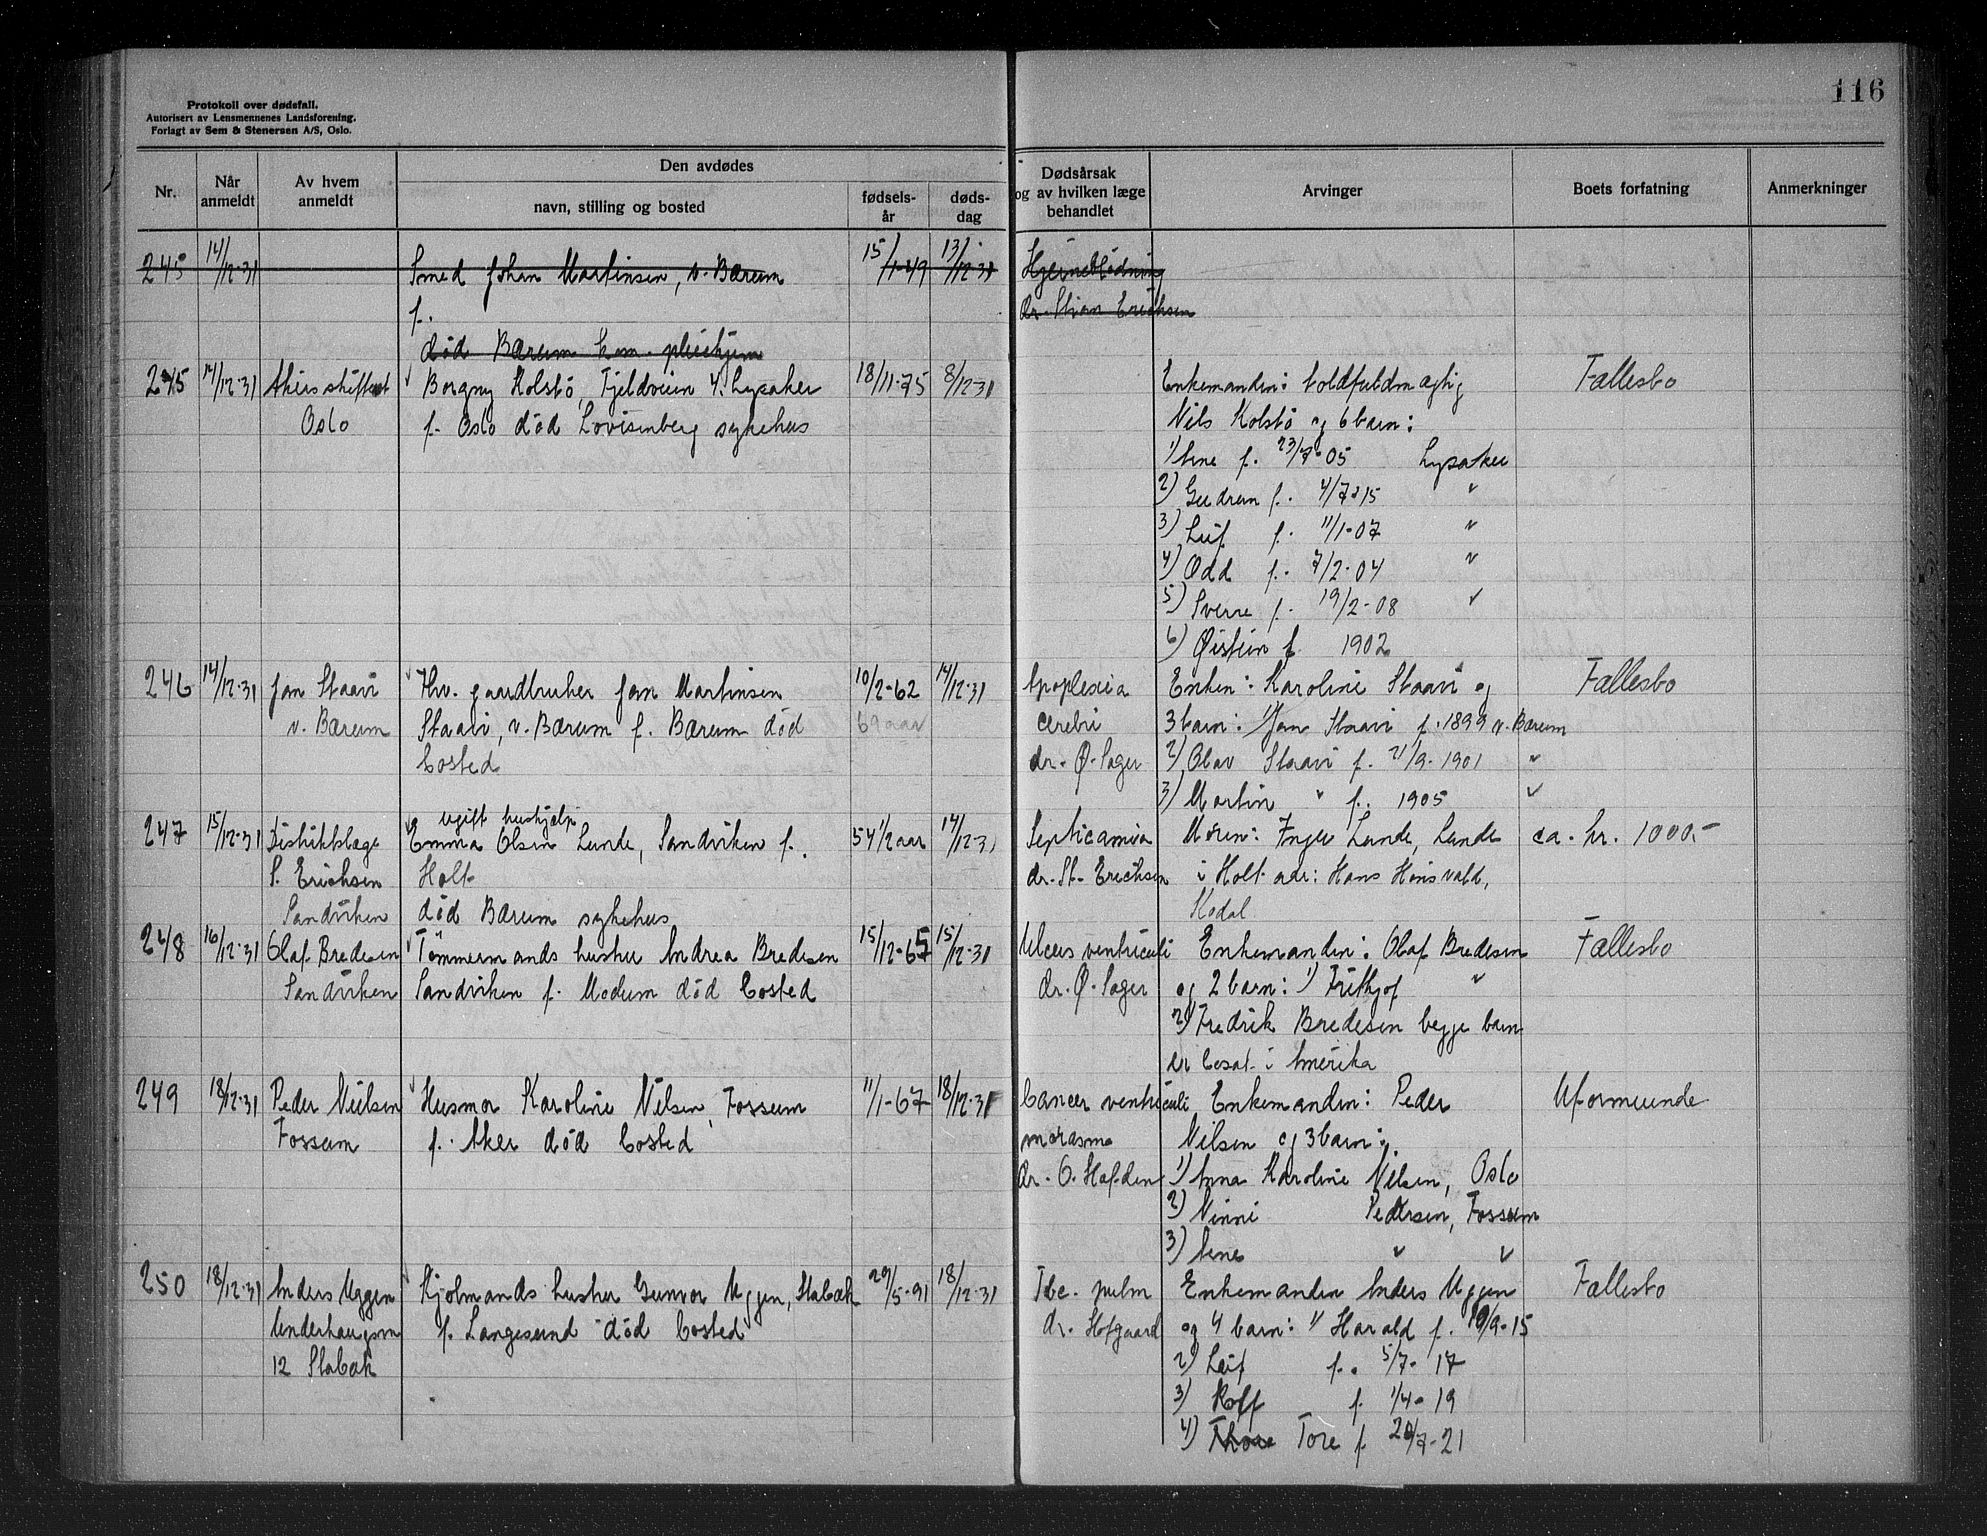 116
Protokoll over dødsfall.
Autorisert av Lensmennenes Landsforening.
Forlagt av Sem & Stenersen A/S, Oslo.
Nr.
Når anmeldt
Av hvem anmeldt
Den avdødes
navn, stilling og bosted
fødsels-år
døds-dag
Dødsårsak og av hvilken læge behandlet
Arvinger
Boets forfatning
Anmerkninger
245 14/12-31 Smed Johan Martinsen, v. Bærum 15/1-49 13/12-31 Hjerneblødning
f. dr. Stian Erichsen
død Bærum kom. pleiehjem
245 14/12-31 Akers skifterett Borgny Kolstö, Fjeldveien 4. Lysaker 18/11-75 8/12-31 Enkemanden: toldfuldmægtig Fællesbo
Oslo f. Oslo död Lovisenberg sykehus Nils Kolstö og 6 barn:
1) Arne f. 23/7-05 Lysaker
2) Gudrun f. 4/7-15 "
3) Leif f. 11/1-07 "
4) Odd f. 7/2-04 "
5) Sverre f. 19/2-08 "
6) Øistein f. 1902
246 14/12-31 Jan Staavi Fhv. gaardbruker Jan Martinsen 10/2-62 14/12-31 Apoplexia Enken: Karoline Staavi og Fællesbo
v. Bærum Staavi, v. Bærum f. Bærum död 69 aar cerebri 3 barn: 1) Jan Staavi f. 1899 v. Bærum
bosted dr. Ø. Sager 2) Olav Staavi f. 21/9-1901 "
3) Martin " f. 1905 "
ugift hushjelp
247 15/12-31 Distriktslæge Emma Olsen Lunde, Sandviken f. 54 1/2 aar 14/12-31 Septicæmia Moren: Inger Lunde, Lunde ca. kr. 1000.-
S. Erichsen Holt dr. St. Erichsen i Holt adr: Hans Hönsvald,
Sandviken död Bærum sykehus Kodal
248 16/12-31 Olaf Bredesen Tömmermands hustru Andrea Bredesen 15/12-65 15/12-31 Ulcus ventriculi Enkemanden: Olaf Bredesen Fællesbo
Sandviken Sandviken f. Modum död bosted dr. Ø. Sager og 2 barn: 1) Frithjof "
2) Fredrik Bredesen begge barn
er bosat i Amerika
249 18/12-31 Peder Nielsen Husmor Karoline Nilsen, Fossum 11/1-67 18/12-31 Cancer ventriculi Enkemanden: Peder Uformuende
Fossum f. Aker död bosted marasme Nilsen og 3 barn:
dr. O. Hafden 1) Anna Karoline Nilsen, Oslo
2) Ninni Pedersen, Fossum
3) Arne " "
250 18/12-31 Anders Uggen Kjölmands hustru Gunvor Uggen, Stabæk 29/5-91 18/12-31 Tbc. pulm Enkemanden Anders Uggen Fællesbo
Underhaugsvn f. Langesund död bosted dr. Hofgaard og 4 barn: 1) Harald f. 19/9-15
12 Stabæk 2) Leif f. 5/7-17
3) Rolf f. 1/4-19
4) Thore Tore f. 20/7-21